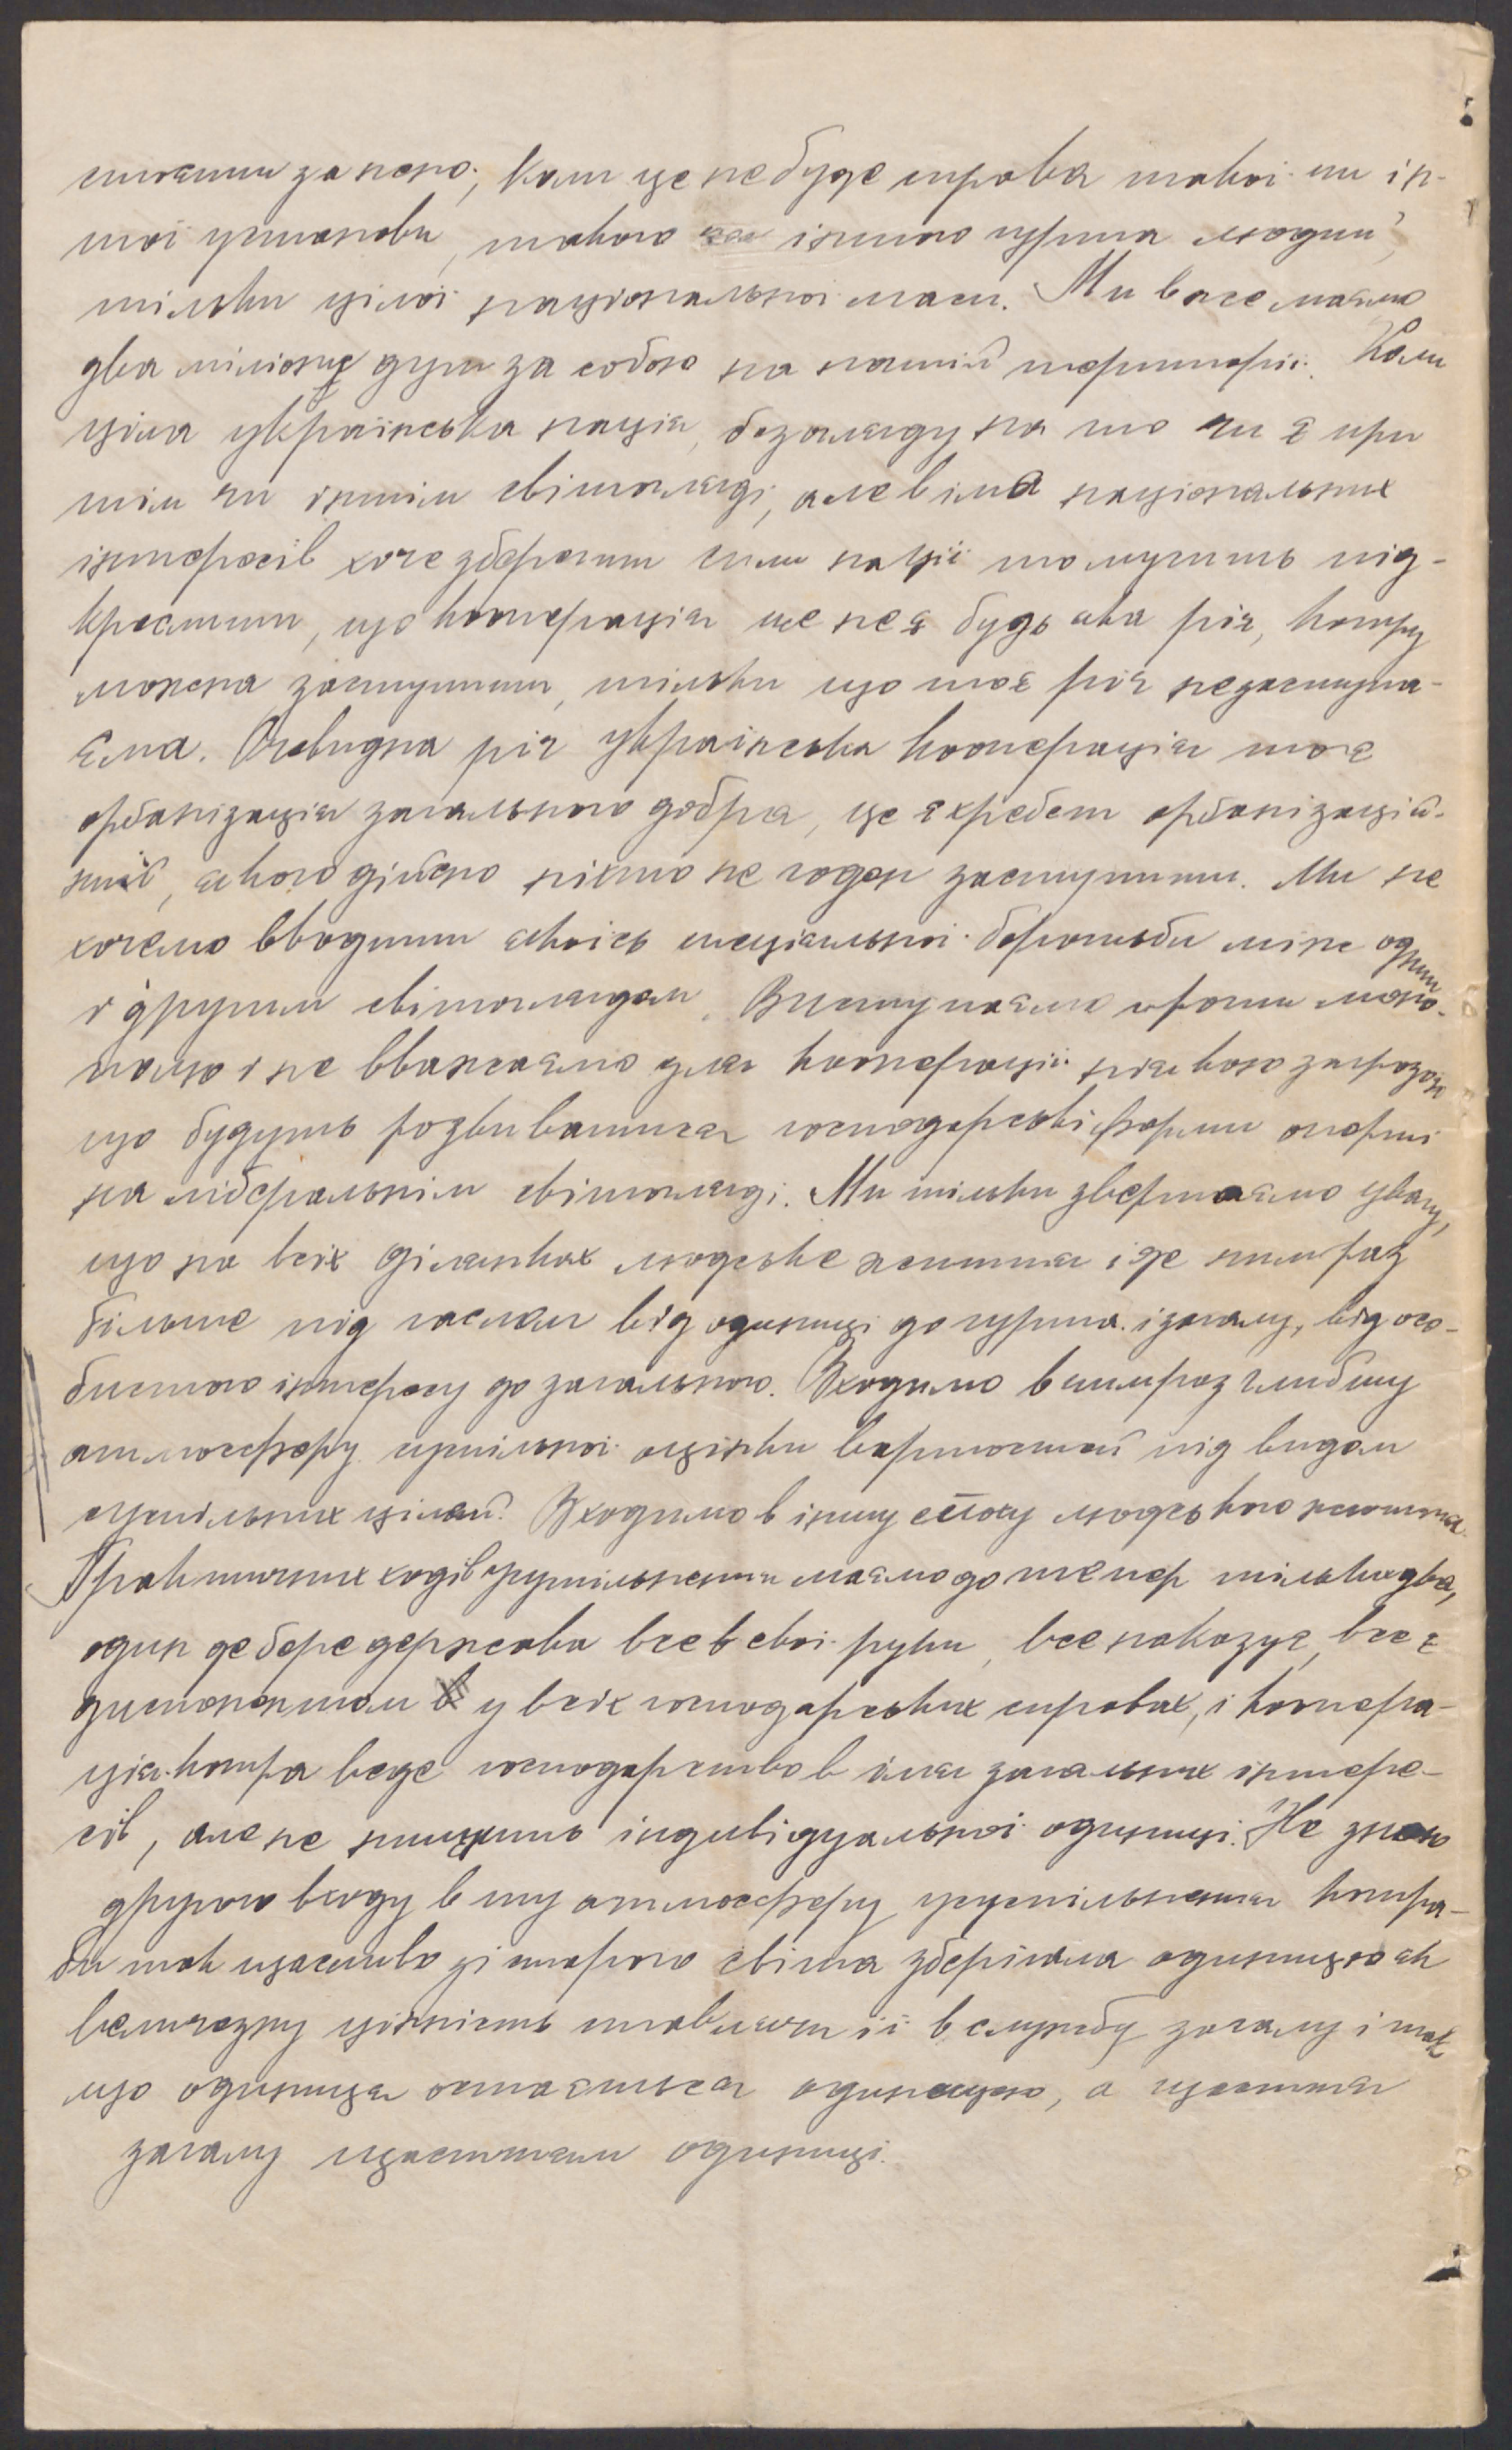 стояти за нею, коли це не буде справа такої чи ін-
шої установи, такого чи іншого гурта людий,
тільки цілої національної маси. Ми вже маємо
два міліони душ за собою на нашій території. Коли
ціла українська нація, без огляду на то чи є при
тім чи іншім світогляді, але в імя національних
інтересів хоче зберегти сили нації то мусить під-
креслити, що кооперація це не є будь яка річ, котру
можна заступити, тільки що то є річ незаступа-
єма. Очевидна річ українська кооперація то є
орґанізація загального добра, це є хребет орґанізацій-
ний, якого дійсно ніхто не годен заступити. Ми не
хочемо вводити якоїсь спеціальної боротьби між одним
і другим світоглядом. Виступаємо проти моно-
полю і не вважаємо для кооперації ніякою загрозою
що будуть розвиватися господарські форми оперті
на ліберальнім світогляді. Ми тільки звертаємо увагу,
що на всіх ділянках людське життя іде чим раз
більше під гаслом від одиниці до гурта і загалу, від осо-
бистого інтересу до загального. Входимо в чимраз глибшу
атмосферу спільної оцінки вартостей під видом
суспільних цілей. Входимо в іншу епоху людського життя.
Практичних ходів усуспільнення маємо до тепер тільки два,
один де бере держава все в свої руки, все наказує, все є
диспонентом у всіх господарських справах, і коопера-
ція котра веде господарство в імя загальних інтере-
сів, але не нищить індивідуальної одиниці. Не знаю
другого входу в ту атмосферу усуспільнення котра-
би так щасливо зі старого світа зберігала одиницю як
величезну цінність ставлячи її в службу загалу і так
що одиниця остається одиницею, а щастя
загалу щастям одиниці.